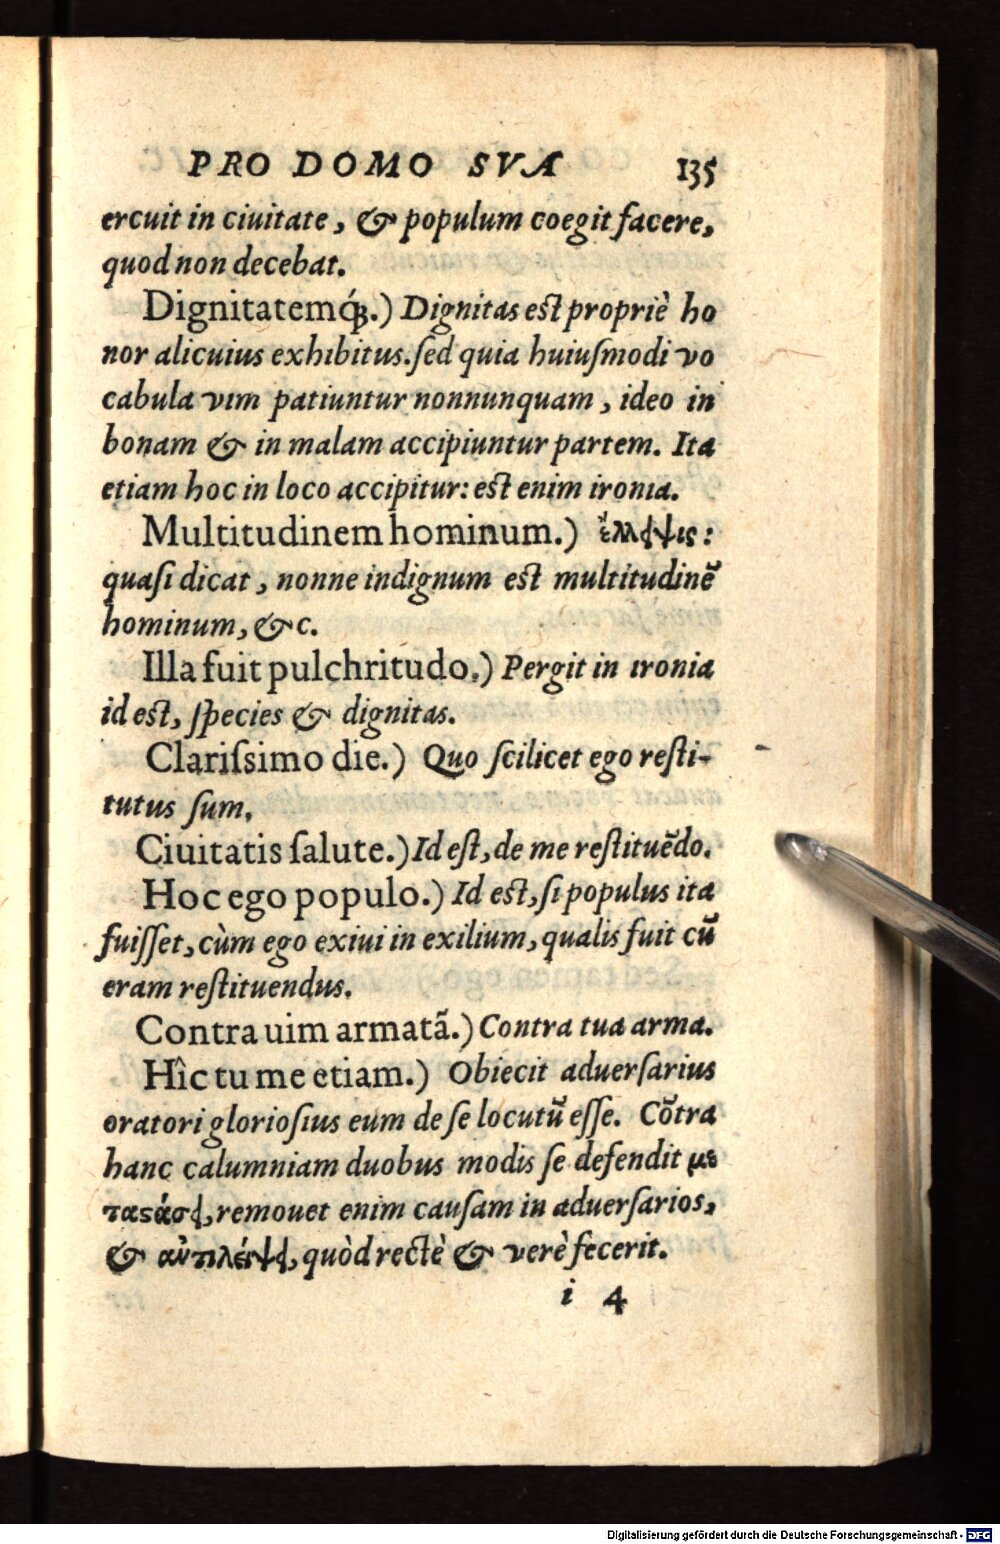 PRO DOMO SVA 135
ercuit in ciuitate, & populum coegit facere,
quod non decebat.
Dignitatemq́;.) Dignitas est propriè ho
nor alicuius exhibitus. sed quia huiuſmodi vo
cabula vim patiuntur nonnunquam, ideo in
bonam & in malam accipiuntur partem. Ita
etiam hoc in loco accipitur: est enim ironia.
Multitudinem hominum.) ἔλλειψις:
quaſi dicat, nonne indignum est multitudinẽ
hominum, &c.
Illa fuit pulchritudo.) Pergit in ironia
id est, ſpecies & dignitas.
Clariſsimo die.) Quo ſcilicet ego reſti-
tutus ſum.
Ciuitatis ſalute.) Id eſt, de me reſtituẽdo.
Hoc ego populo.) Id est, ſi populus ita
fuiſſet, cùm ego exiui in exilium, qualis fuit cũ
eram reſtituendus.
Contra uim armatã.) Contra tua arma.
Hîc tu me etiam.) Obiecit aduerſarius
oratori glorioſius eum de ſe locutũ eſſe. Cõtra
hanc calumniam duobus modis ſe defendit με
ταστάσει, remouet enim cauſam in aduerſarios,
& ἀντιλήψει, quòd rectè & verè fecerit.
i 4
Digitalisierung gefördert durch die Deutsche Forschungsgemeinschaft - DFG